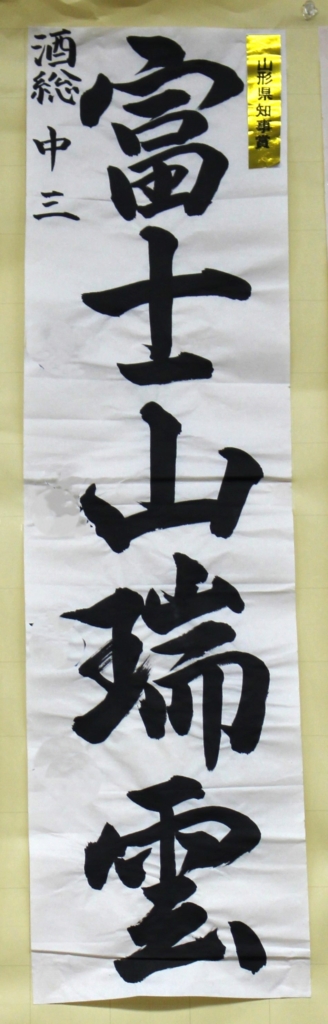 山形県知事賞
富士山瑞雲
酒総 中三